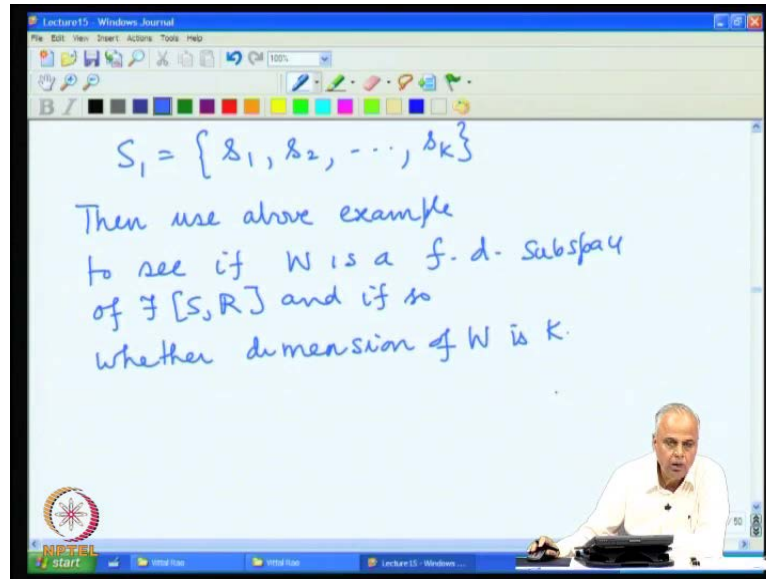 Lecture15 - Windows Journal
File Edit View Insert Actions Tools Help
100%
B I
S₁ = { s₁, s₂, ..., s_K }
Then use above example
to see if W is a f. d. subspace
of F [S, R] and if so
whether dimension of W is K.
/ 50
NPTEL
start Vittal Rao Vittal Rao Lecture15 - Windows ...